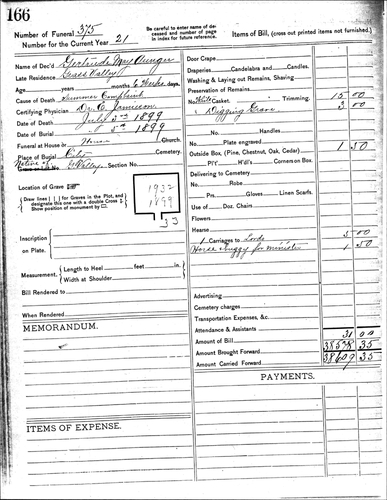 166
Number of Funeral 375
Number for the Current Year 21
Be carefully to enter name of de-
ceased and number of page
in index for future reference.
Items of Bill, (cross out printed items not furnished.)
Name of Dec'd Gertrude May Aunger
Late Residence Grass Valley
Age years months 6 Weeks days.
Cause of Death Summer Complaint
Certifying Physician Dr. C. Jamieson
Date of Death July 3rd 1899
Date of Burial " 5th 1899
Funeral at House or Church.
Place of Burial City Cemetery.
Valley Section No.
Location of Grave
Draw lines [ ] for Graves in the Plot, and
designate this one with a double Cross
Show position of monument by
1932
1899
33
Inscription
on Plate.
Measurement, Length to Heel feet in.
Width at Shoulder
Bill Rendered to
When Rendered
MEMORANDUM.
ITEMS OF EXPENSE.
Door Crape
Draperies Candelabra and Candles.
Washing & Laying out Remains, Shaving
Preservation of Remains
No White Casket. Trimming. 15 00
" Digging Grave 3 00
No. Handles
Plate engraved
Outside Box, (Pine, Chestnut, Oak, Cedar) 1 50
PIY Will & Corners on Box.
Delivering to Cemetery
No. Robe
Prs. Gloves Linen Scarfs.
Use of Doz. Chairs
Flowers
Hearse
1 Carriages to Lords 5 00
Horse & Buggy for minister 1 50
Advertising
Cemetery charges
Transportation Expenses, &c.
Attendance & Assistants
Amount of Bill 31 00
Amount Brought Forward 38578 35
Amount Carried Forward 38609 35
PAYMENTS.